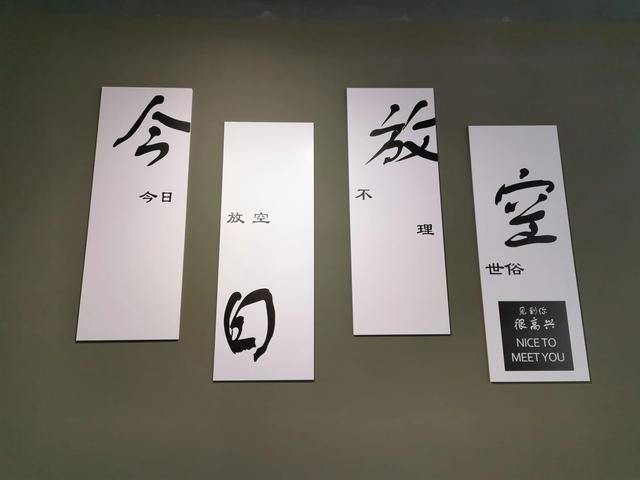 今
今日
日
放空
放
不
理
空
世俗
见到你
很高兴
NICE TO
MEET YOU